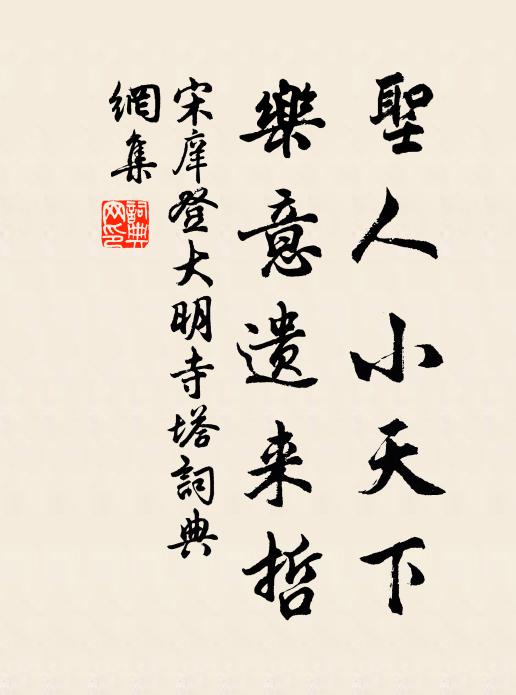 聖人小天下
樂意遺来哲
宋庠登大明寺塔詞典
網集
詞典網印